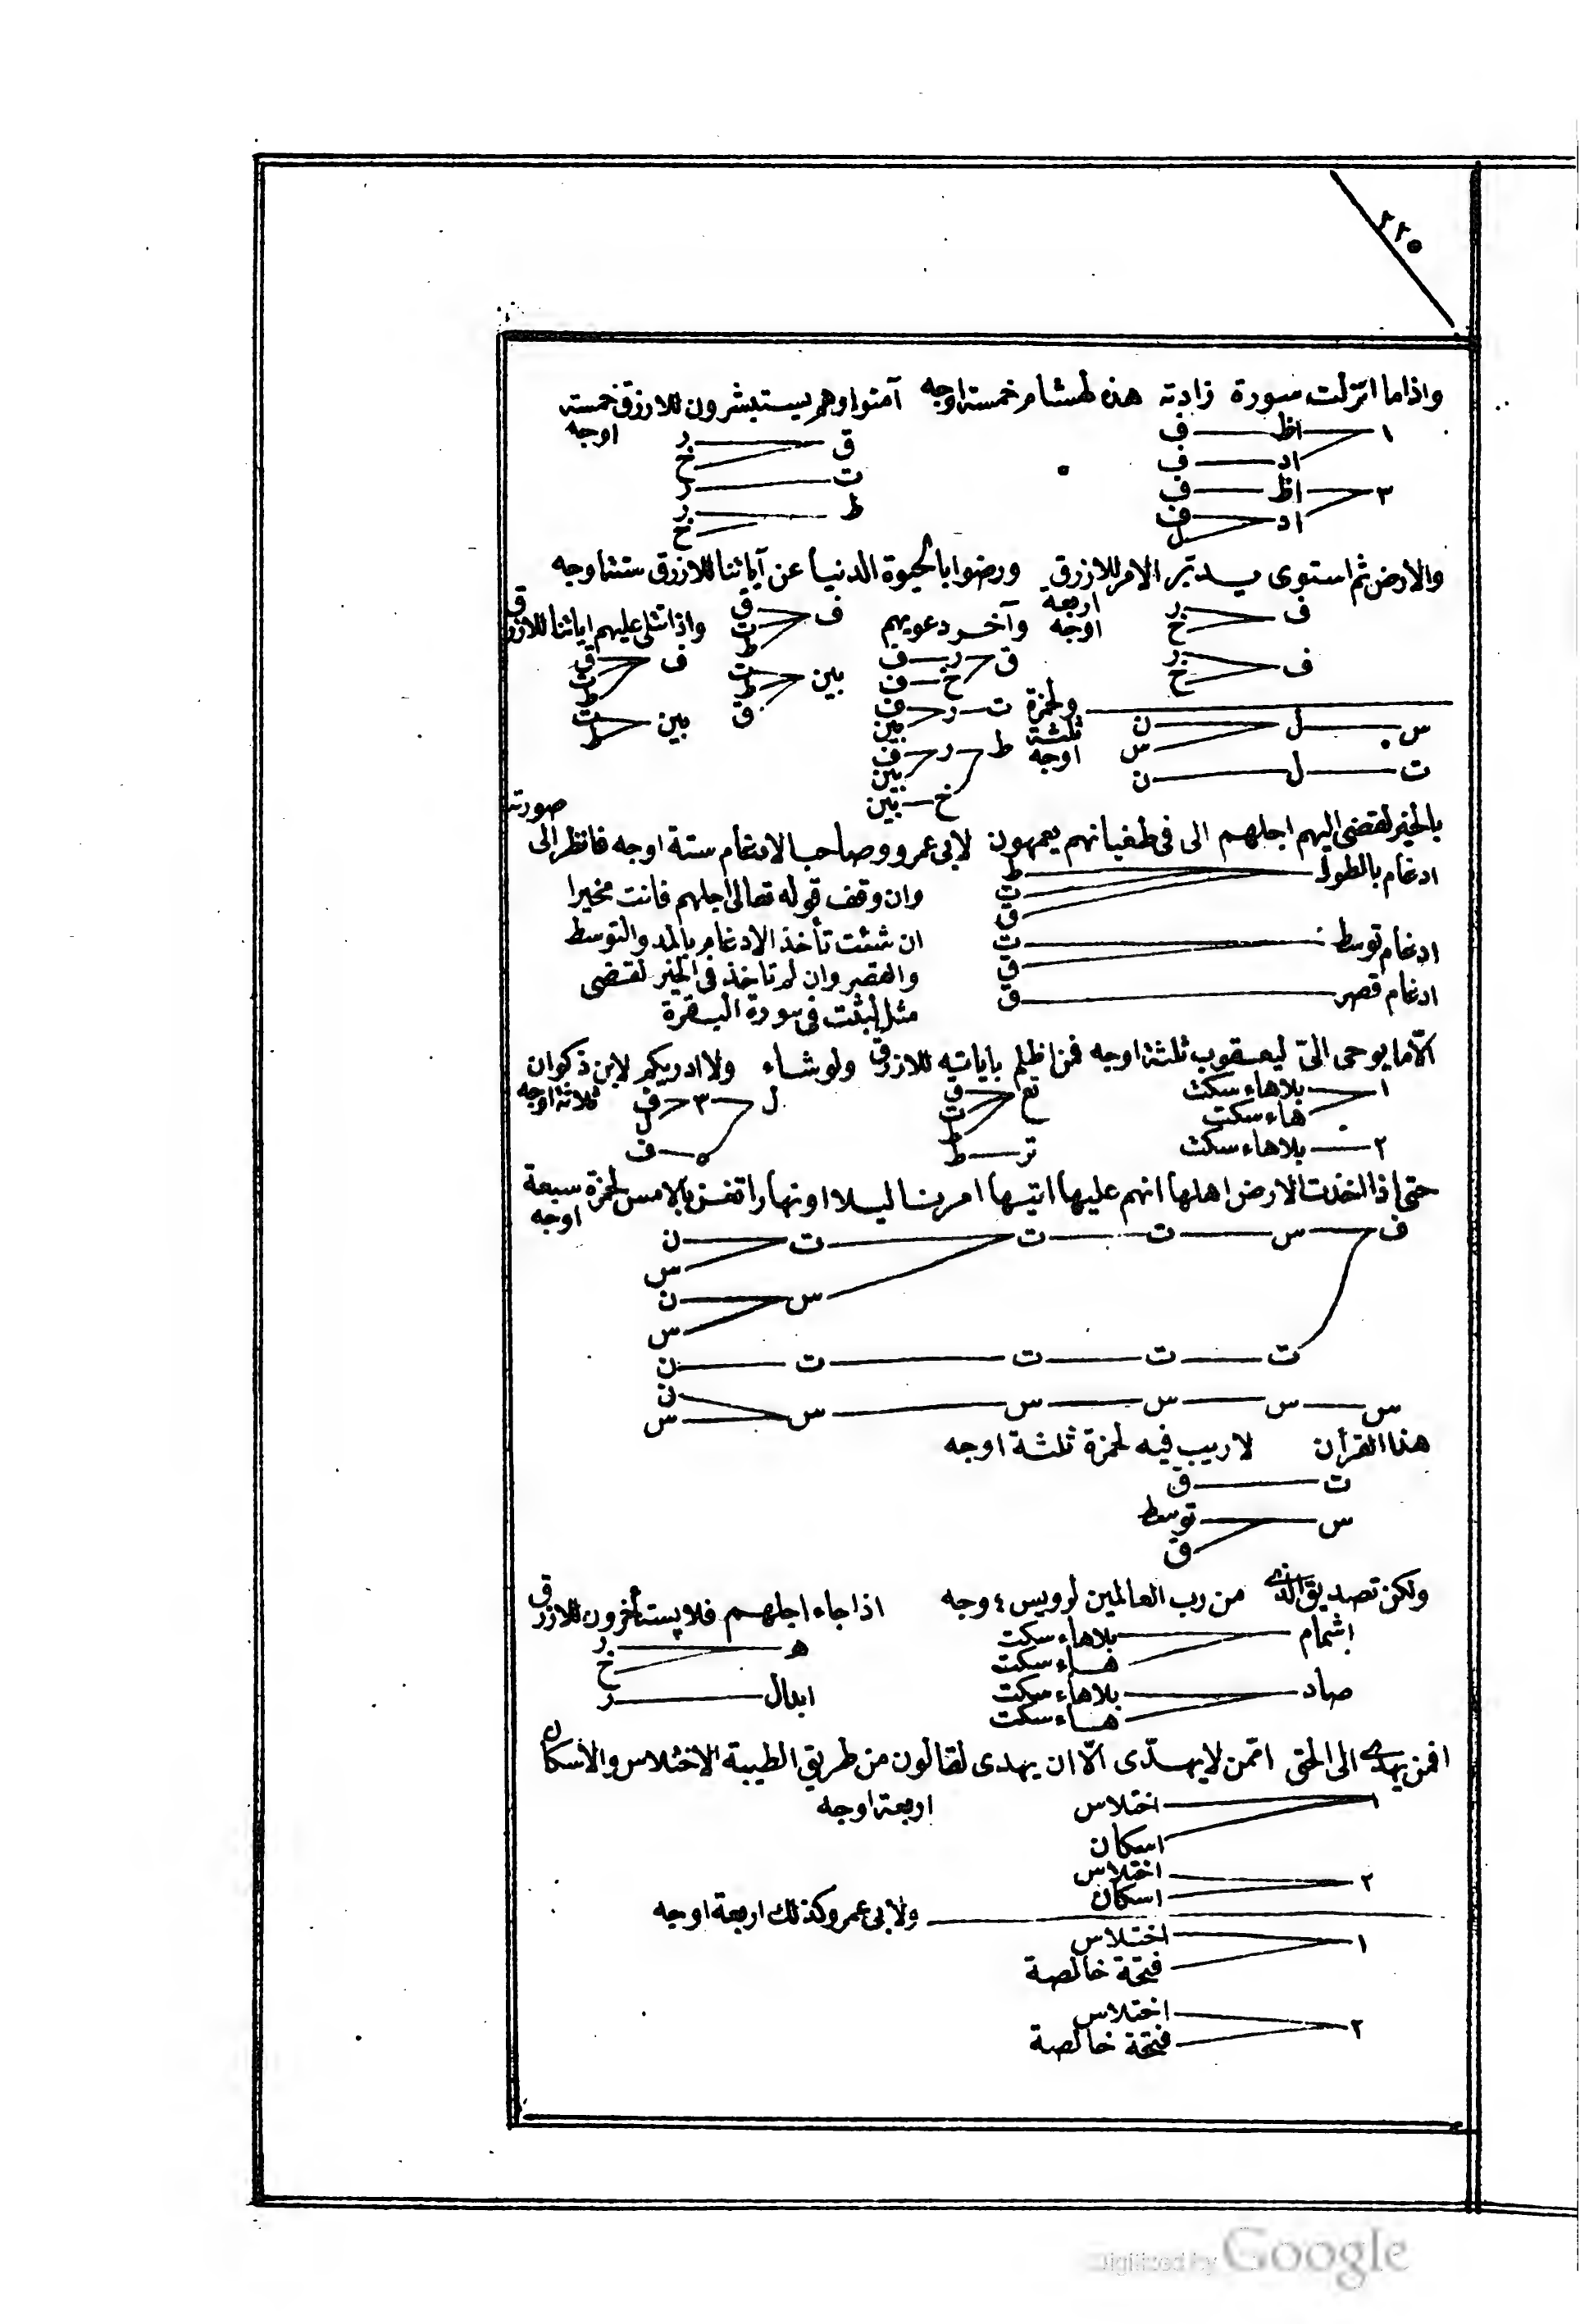 ٢٢٥
واذا ما انزلت سورة زادته هذه لهشام خمسة اوجه آمنوا وهم يستبشرون للازرق خمسة
اوجه
١ اظ ف
اد ف
٣ اظ ف
اد ف
ل
ق ر
خ
ت ر
ط ر
خ
والارض ثم استوى يدبّر الامر للازرق ورضوا بالحيوة الدنيا عن آياتنا للازرق ستة اوجه
اربعة
اوجه
ف ر
خ
ف ر
خ
وآخر دعويهم
ق ر ف
خ ف
ت ر ف
بين
ط ر ف
بين
خ بين
ف ق
ت
ط
بين ت
ط
ق
واذا تتلى عليهم اياتنا للازرق
ف ق
ت
ط
بين ت
ط
ولحمزة
ثلثة
اوجه
س ل ن
س
ت ل ن
بالخير لقضى اليهم اجلهم الى فى طغيانهم يعمهون لابى عمرو وصاحب الادغام ستة اوجه فانظر الى
صورته
ادغام بالطول ط
ت
ق
ادغام توسط ت
ق
ادغام قصر ق
وان وقف قوله تعالى اجلهم فانت مخيرا
ان شئت تأخذ الادغام بالمد والتوسط
والقصر وان لم تاخذ فى الخير لقضى
مثل لبثت فى سورة البقرة
الّا ما يوحى الىّ ليعقوب ثلثة اوجه فمن اظلم باياته للازرق ولو شاء ولا ادريكم لابن ذكوان
ثلاثة اوجه
١ بلا هاء سكت
هاء سكت
٢ بلا هاء سكت
تغ ق
ت
ط
تر ط
ل ٣ ف
ل
٥ ف
حتى اذا اخذت الارض اهلها انهم عليها اتيها امرنا ليلا او نهارا تغن بالامس لحمزة سبعة
اوجه
ف س ت ت ت ن
س
س ن
س
ت ت ت ت ن
س س س س س ن
س
هذا القرأن لا ريب فيه لحمزة ثلثة اوجه
ت ق
س توسط
ق
ولكن تصديق الذى من رب العالمين لرويس ٤ وجه اذا جاء اجلهم فلا يستأخرون للازرق
اشمام بلا هاء سكت
هاء سكت
صاد بلا هاء سكت
هاء سكت
هـ ر
خ
ابدال ر
افمن يهدى الى الحق امّن لا يهدّى الّا ان يهدى لقالون من طريق الطيبة الاختلاس والأسكان
اربعة اوجه
١ اختلاس
اسكان
٢ اختلاس
اسكان
ولأبى عمرو كذلك اربعة اوجه
١ اختلاس
فتحة خالصة
٢ اختلاس
فتحة خالصة
Digitized by Google